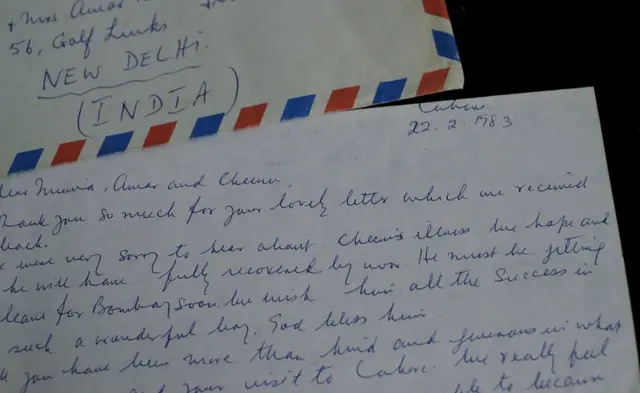 & Mrs Amar
56, Golf Links
NEW DELHI.
(INDIA)
Lahore
22.2.1983
Dear Munia, Amar and Cheenu,
Thank you so much for your lovely letter which we received
back.
were very sorry to hear about Cheenu's illness. We hope and
he will have fully recovered by now. He must be getting
leave for Bombay soon. We wish him all the success in
such a wonderful boy. God bless him.
you have been more than kind and generous in what
and your visit to Lahore. We really feel
to because